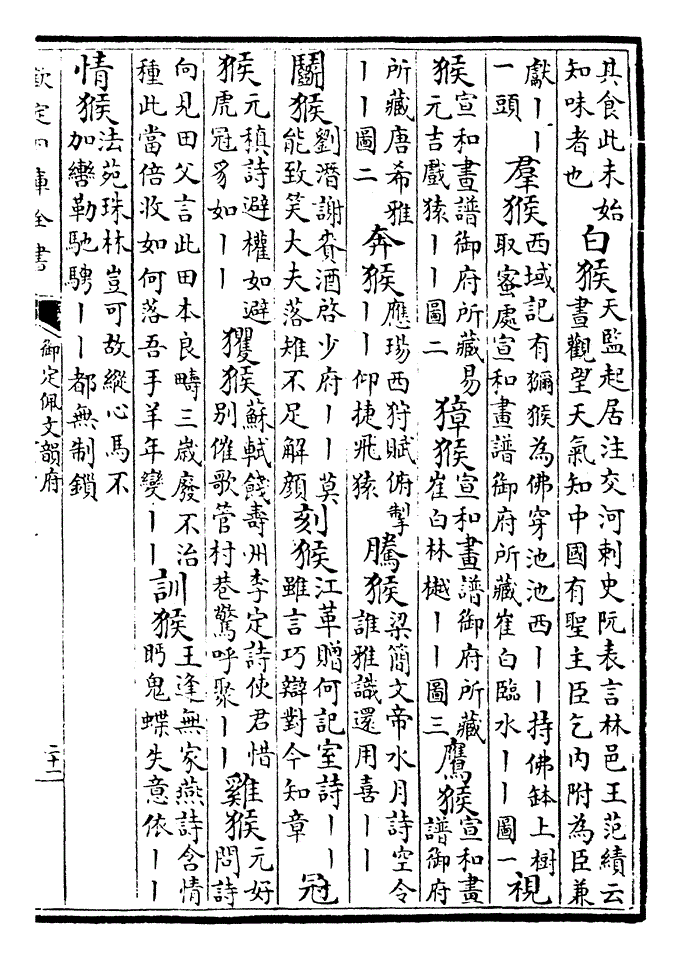 其食此未始
知味者也
白猴
天監起居注交河刺史阮表言林邑王范績云
晝觀望天氣知中國有聖主臣乞內附為臣兼
獻丨丨
一頭
羣猴
西域記有獼猴為佛穿池池西丨丨持佛鉢上樹
取蜜處宣和畫譜御府所藏崔白臨水丨丨圖一
視
猴
宣和畫譜御府所藏易
元吉戲猿丨丨圖二
獐猴
宣和畫譜御府所藏
崔白林樾丨丨圖三
鷹猴
宣和畫
譜御府
所藏唐希雅
丨丨圖二
奔猴
應瑒西狩賦俯掣
丨丨仰捷飛猿
騰猴
梁簡文帝水月詩空令
誰雅識還用喜丨丨
鬭猴
劉潛謝賚酒啓少府丨丨莫
能致笑大夫落雉不足解顏
刻猴
江革贈何記室詩丨丨
雖言巧辯對今知章
冠
猴
元稹詩避權如避
虎冠豸如丨丨
玃猴
蘇軾餞壽州李定詩使君惜
別催歌管村巷驚呼聚丨丨
雞猴
元好
問詩
向見田父言此田本良疇三歲廢不治
種此當倍收如何落吾手羊年變丨丨
訓猴
王逢無家燕詩含情
眄鬼蝶失意依丨丨
情猴
法苑珠林豈可故縱心馬不
加轡勒馳騁丨丨都無制鎖
欽定四庫全書
御定佩文韻府
二十二